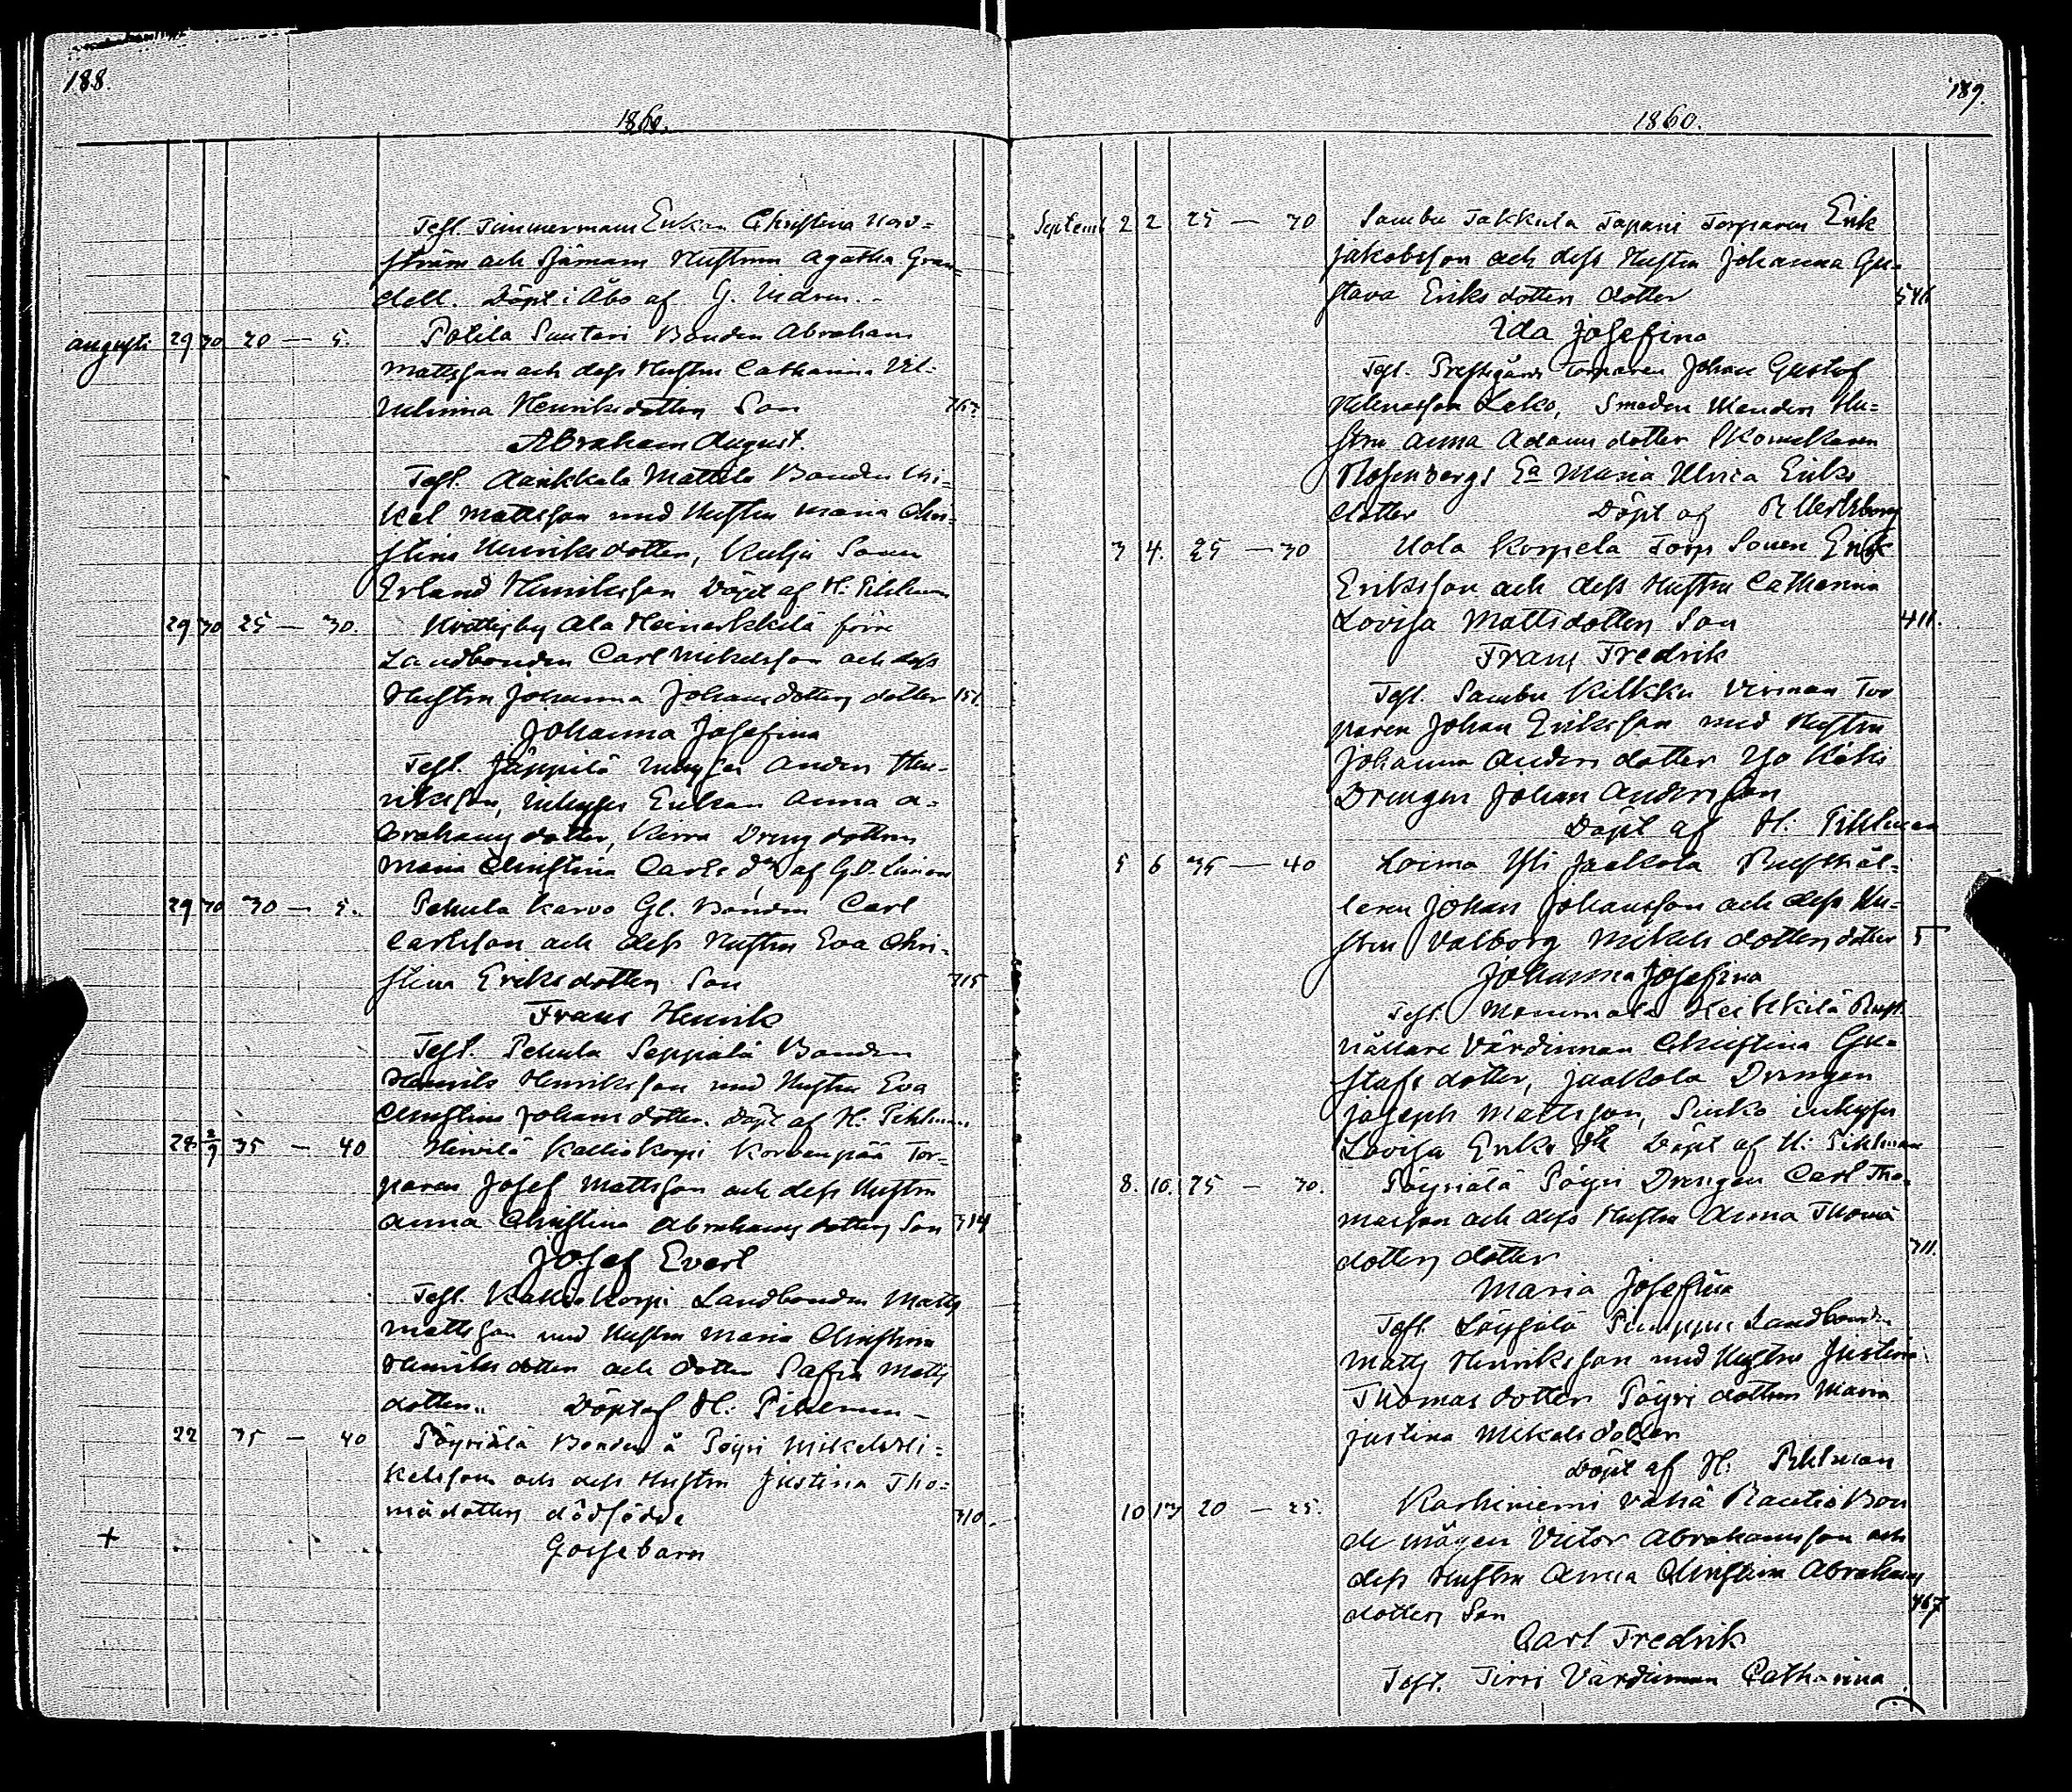 188.
1860.
Test. Timmermans Enkan Christina Nord=
ström och Sjömans Hustrun Agatha Gran=
dell. Döpt i Åbo af G.
Augusti 29 30 20 — 5. Potila Suutari Bonden Abraham
Mattsson och dess Hustru Catharina Vil=
helmina Henriksdotters Son
Abraham August.
Test. Mattila Bonden Mi=
kel Mattsson med Hustru Maria Chri=
stina Henriksdotter, Sonen
Erland Henriksson Döpt af H. Pihlman
29 30 25 — 30. Ala Heineikkilä förre
Landbonden Carl Mikelsson och dess
Hustru Johanna Johansdotters dotter 151.
Johanna Josefina
Test. Jäppilä Inhyses Anders Hen=
riksson, Inhyses Enkan Anna A=
brahamsdotter, Drengdottern
Maria Christina Carls dr af G.D.
29 30 30 — 5. Pehula Karvo Gl. Bonden Carl
Carlsson och dess Hustru Eva Chri=
stina Eriksdotters Son 315
Frans Henrik
Test. Pehula Seppälä Bonden
Henrik Henriksson med Hustru Eva
Christina Johansdotter. Döpt af H. Pihlman
28 2/9 35 — 40 Hirvilä Kalliokorpi Korvenpää Tor=
paren Josef Mattsson och dess Hustru
Anna Christina Abrahamsdotters Son 314
Josef Evert
Test. Kalliokorpi Landbonden Matts
Mattsson med Hustru Maria Christina
Henriksdotter och dotter Safia Matts
dotter. Döpt af H. Pihlman
22 35 — 40 Pöyriälä Bonden å Pöyri Mikel Mi=
kelsson och dess Hustru Justina Tho=
mädotters dödfödde 310.
+ Gossebarn
189.
1860.
Septemb 2 2 25 — 30 Sambu Takkula Tapani Torparen Erik
Jakobsson och dess Hustru Johanna Gu=
stava Eriksdotters dotter 541
Ida Josefina
Test. Prestgårds Torparen Johan Gustof
Leko, Smeden Hu=
stru Anna Adamsdotter Skomakaren
Rosenbergs Ea Maria Ulrica Eriks
dotter Döpt af
3 4. 25 — 30 Uola Korpela Torp Sonen Erik
Eriksson och dess Hustru Catharina
Lovisa Mattsdotters Son 411.
Frans Fredrik
Test. Sambu Kilkku Tor
paren Johan Eriksson med Hustru
Johanna Andersdotter
Drengen Johan Andersson
Döpt af H. Pihlman
5 6 35 — 40 Loima Yli Jaakola Rusthål=
laren Johan Johansson och dess Hu=
stru Valborg Mikelsdotters dotter 5
Johanna Josefina
Test. Rust
hållare Värdinnan Christina Gu=
stafsdotter, Jaakola Drengen
Joseph Mattsson, inhyses
Lovisa Eriks dtr Döpt af H. Pihlman
8. 10. 25 — 30. Pöyriälä Pöyri Drengen Carl Tho=
masson och dess Hustru Anna Thomä
dotters dotter 311.
Maria Josefina
Test. Landbonden
Matts Henriksson med Hustru Justina
Thomasdotter Pöyri dottern Maria
Justina Mikelsdotter
Döpt af H. Pihlman
10 13 20 — 25. Karhiniemi Vähä Rautio Bon
de mågen Victor Abrahamsson och
dess Hustru Anna Christina Abrahams
dotters Son 467
Carl Fredrik
Test. Tirri Värdinnan Catharina